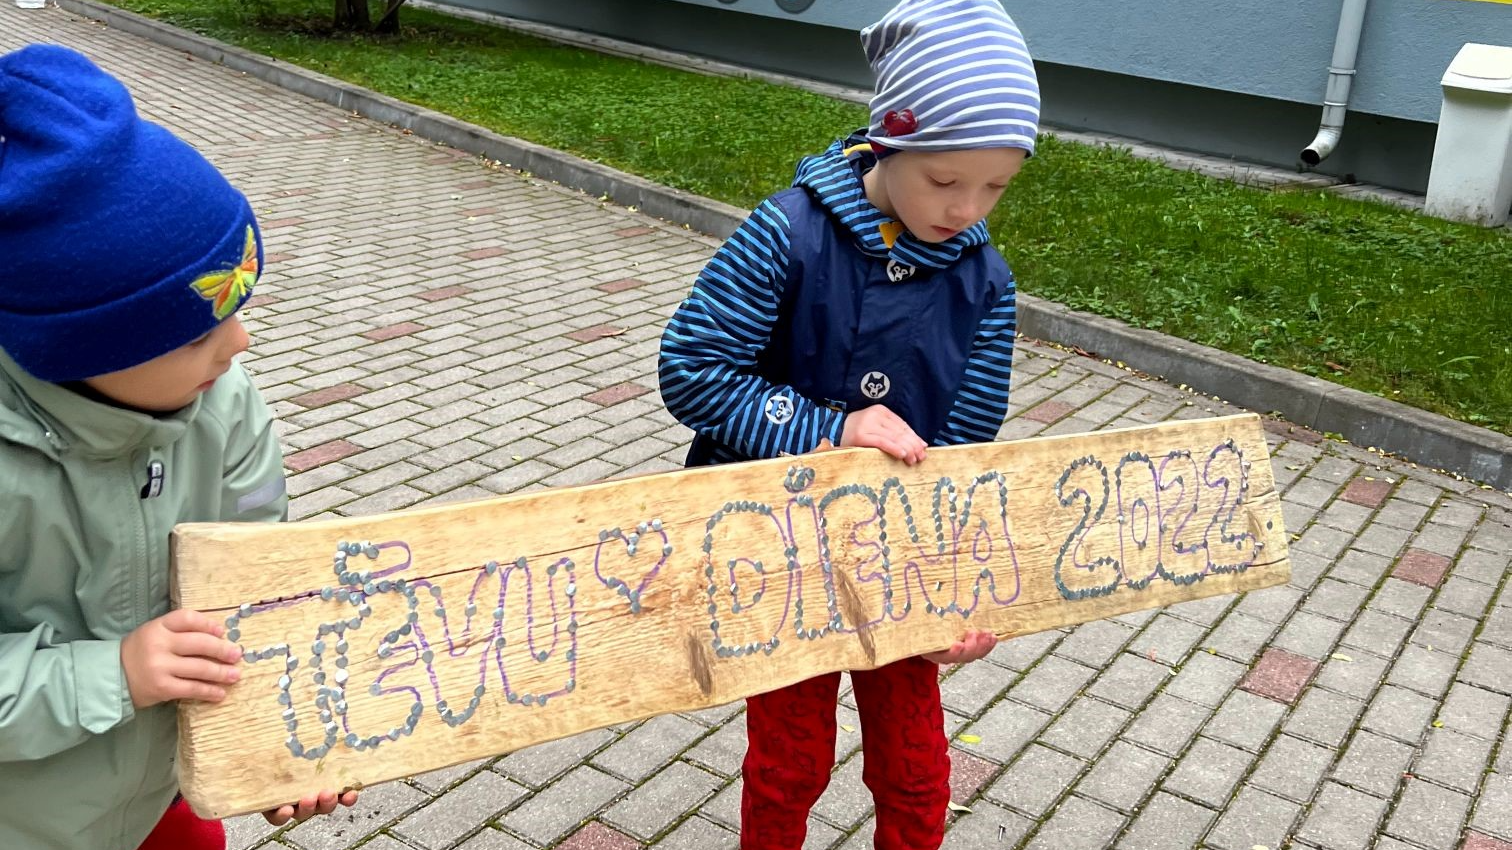 TĒVU DIENA 2022.